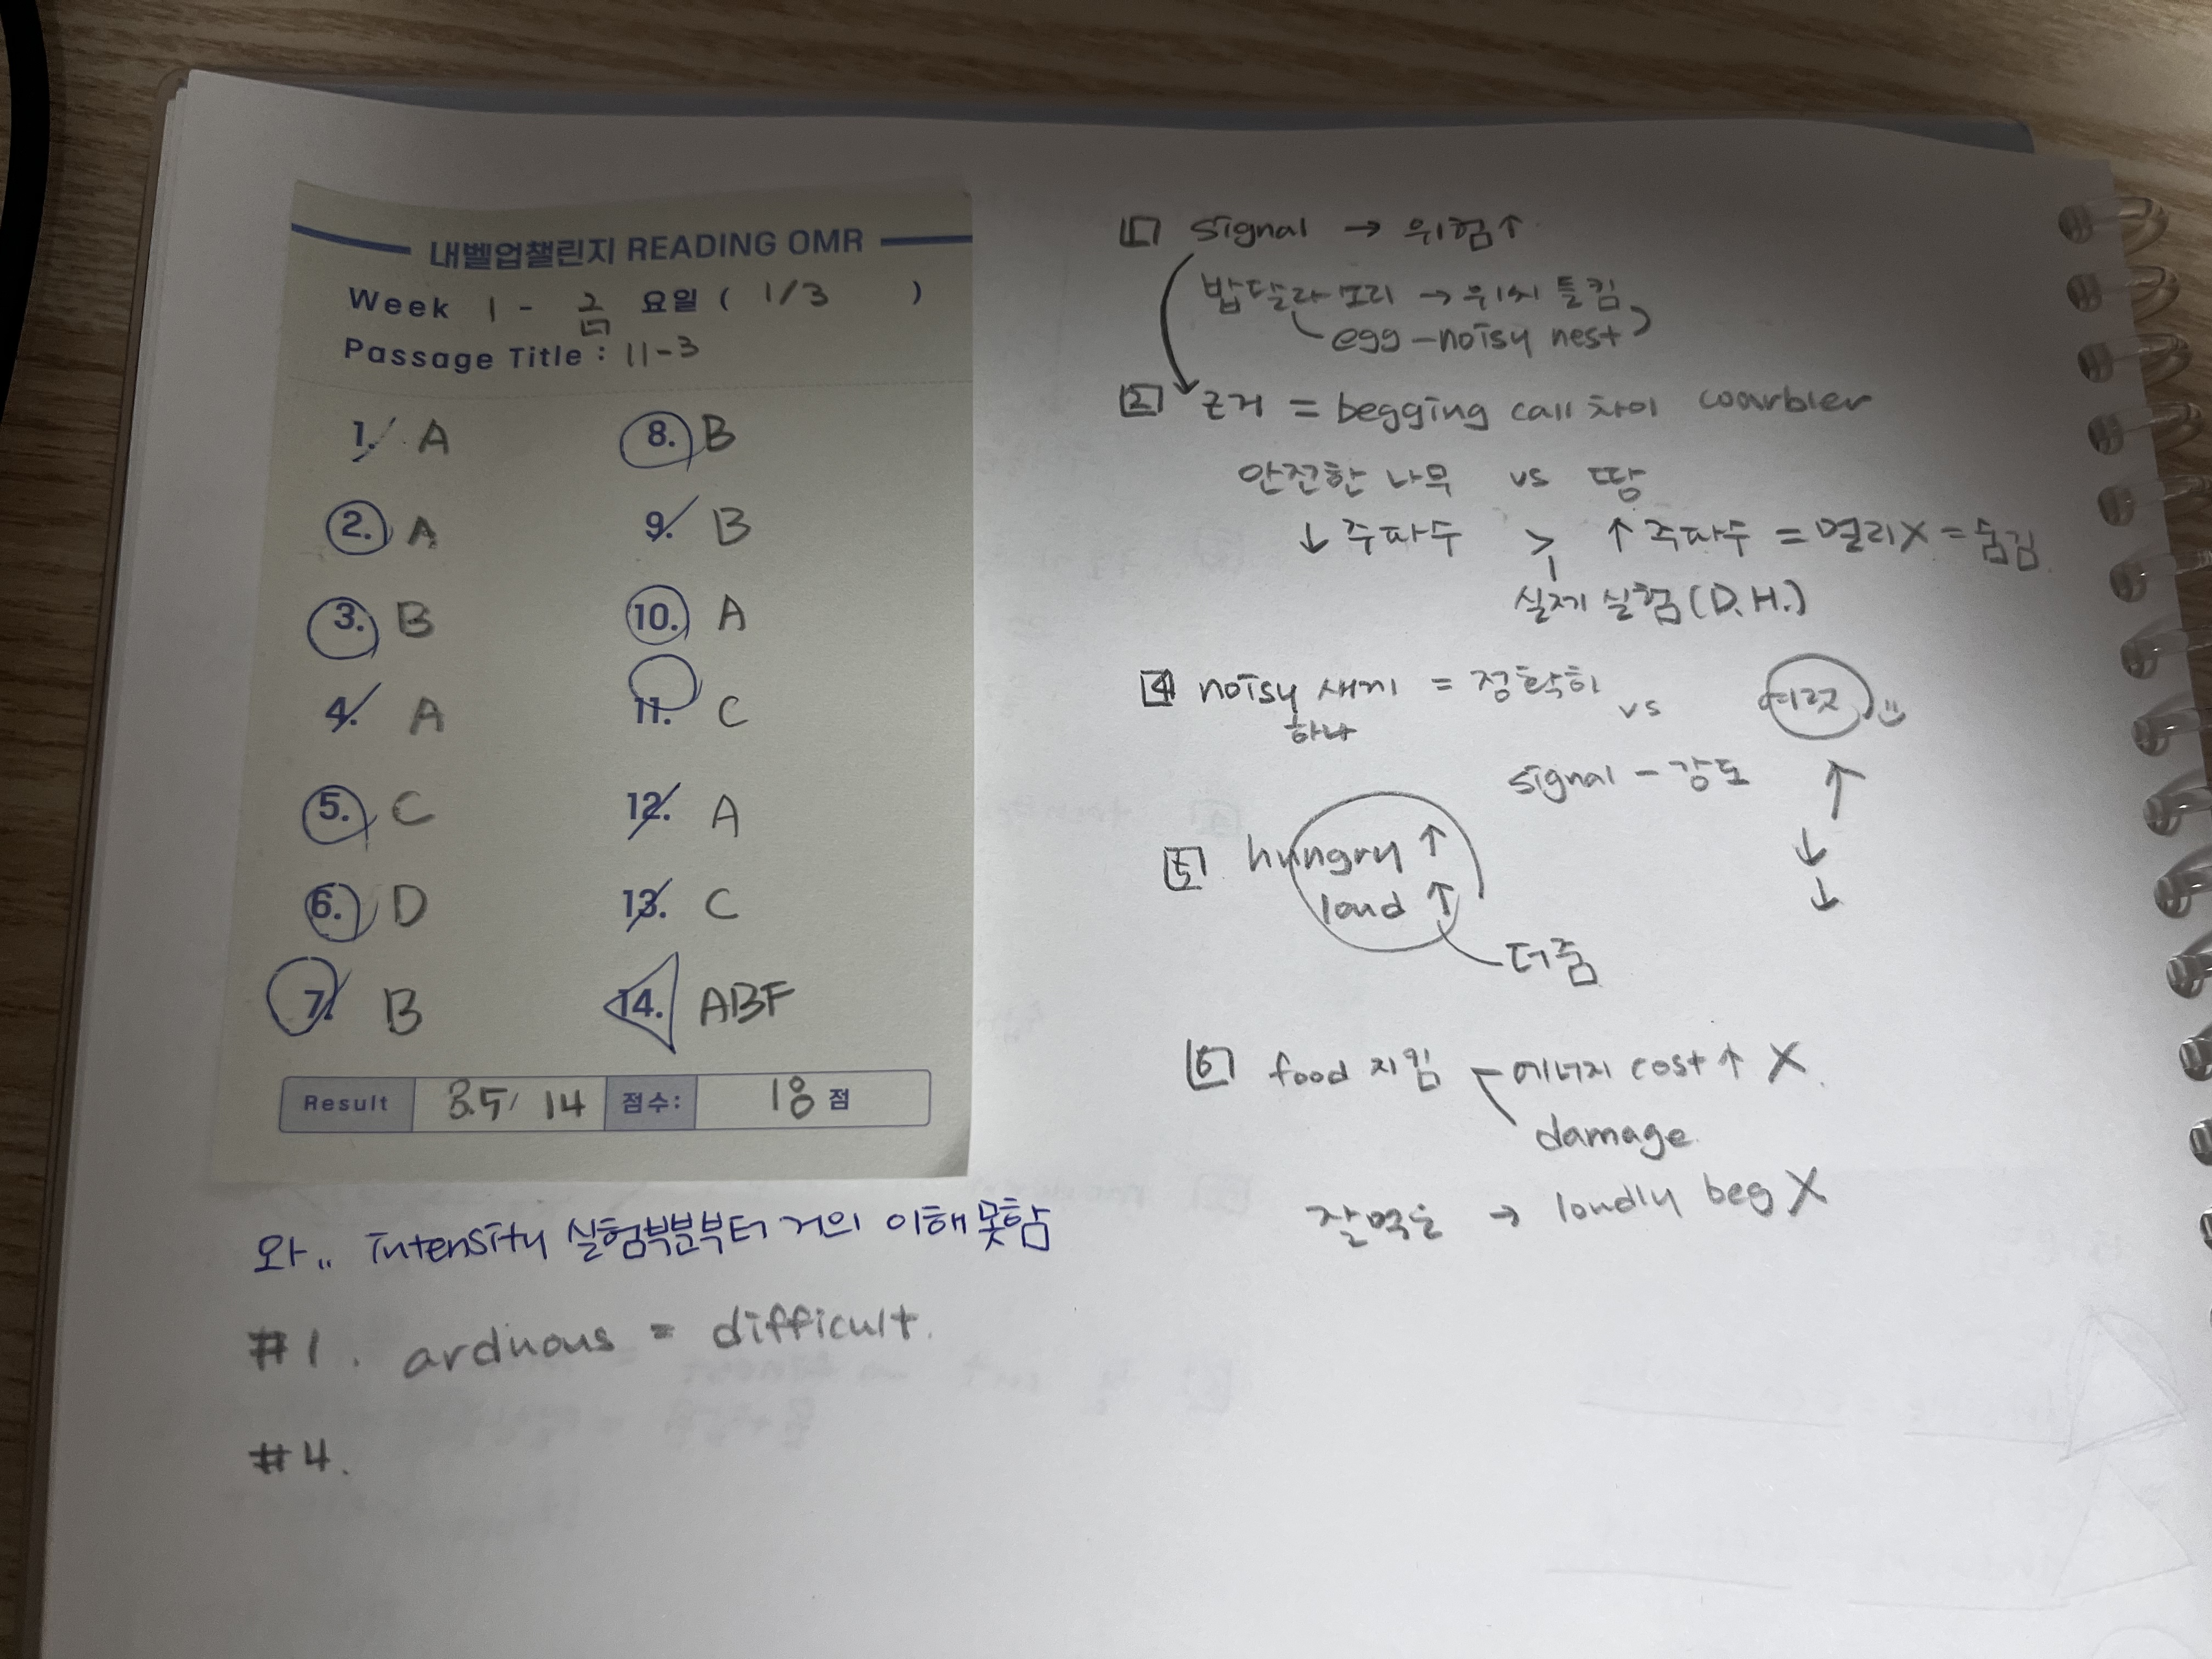 내벨업챌린지 READING OMR
Week 1 - 금 요일 ( 1/3 )
Passage Title : 11-3
1. A
2. A
3. B
4. A
5. C
6. D
7. B
8. B
9. B
10. A
11. C
12. A
13. C
14. ABF
Result 8.5/ 14 점수: 18 점
와.. intensity 실험부분부터 거의 이해 못함
#1. arduous = difficult.
#4.
1 signal → 위험↑
밥달라 소리 → 위치 들킴
egg-noisy nest
2 근거 = begging call 차이 warbler
안전한 나무 vs 땅
↓ 주파수 > ↑ 주파수 = 멀리X = 숨김
실제 실험 (D.H.)
4 noisy 새끼 = 정확히 vs 여럿
하나
signal - 강도 ↑
↓
↓
5 hungry ↑
loud ↑
더줌
6 food 지킴 에너지 cost ↑ X
damage
잘먹은 → loudly beg X